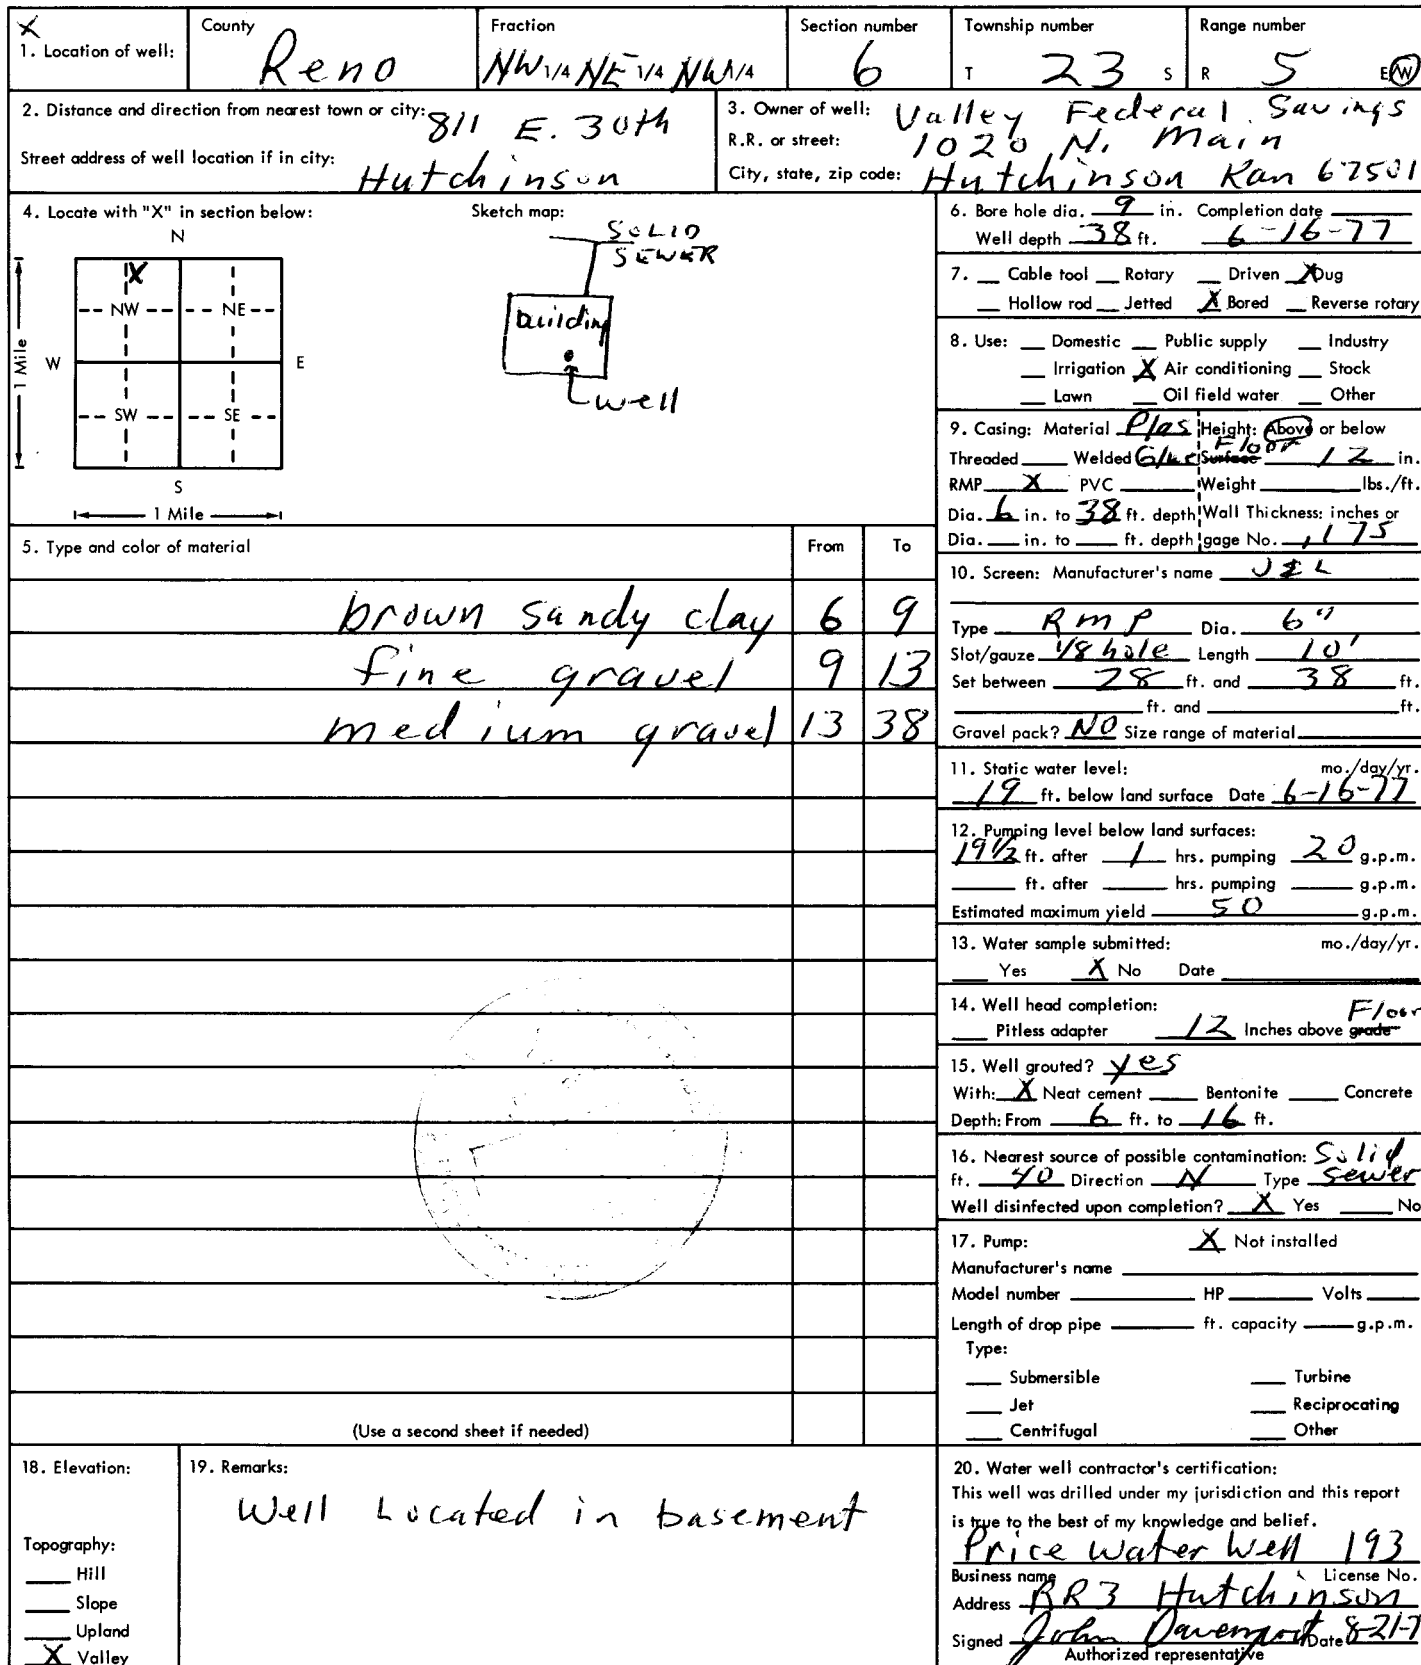 X
1. Location of well:
County
Reno
Fraction
NW 1/4 NE 1/4 NW 1/4
Section number
6
Township number
T 23 S
Range number
R 5 E/W
2. Distance and direction from nearest town or city: 811 E. 30th
Street address of well location if in city: Hutchinson
3. Owner of well: Valley Federal Savings
R.R. or street: 1020 N. Main
City, state, zip code: Hutchinson Kan 67501
4. Locate with "X" in section below:
N
X
NW NE
W E
SW SE
S
1 Mile
1 Mile
Sketch map:
SOLID
SEWER
building
well
5. Type and color of material From To
brown sandy clay 6 9
fine gravel 9 13
medium gravel 13 38
(Use a second sheet if needed)
6. Bore hole dia. 9 in. Completion date
Well depth 38 ft. 6-16-77
7. __ Cable tool __ Rotary __ Driven X Dug
__ Hollow rod __ Jetted X Bored __ Reverse rotary
8. Use: __ Domestic __ Public supply __ Industry
__ Irrigation X Air conditioning __ Stock
__ Lawn __ Oil field water __ Other
9. Casing: Material Plas Height: Above or below
Threaded ___ Welded Glue Surface Floor 12 in.
RMP X PVC ___ Weight ___ lbs./ft.
Dia. 6 in. to 38 ft. depth Wall Thickness: inches or
Dia. ___ in. to ___ ft. depth gage No. .175
10. Screen: Manufacturer's name
Type RMP Dia. 6"
Slot/gauze 1/8 hole Length 10'
Set between 28 ft. and 38 ft.
___ ft. and ___ ft.
Gravel pack? NO Size range of material ___
11. Static water level: mo./day/yr.
19 ft. below land surface Date 6-16-77
12. Pumping level below land surfaces:
19 1/2 ft. after 1 hrs. pumping 20 g.p.m.
___ ft. after ___ hrs. pumping ___ g.p.m.
Estimated maximum yield 50 g.p.m.
13. Water sample submitted: mo./day/yr.
__ Yes X No Date ___
14. Well head completion:
__ Pitless adapter 12 Inches above grade Floor
15. Well grouted? yes
With: X Neat cement ___ Bentonite ___ Concrete
Depth: From 6 ft. to 16 ft.
16. Nearest source of possible contamination: Solid
ft. 40 Direction N Type Sewer
Well disinfected upon completion? X Yes ___ No
17. Pump: X Not installed
Manufacturer's name ___
Model number ___ HP ___ Volts ___
Length of drop pipe ___ ft. capacity ___ g.p.m.
Type:
___ Submersible ___ Turbine
___ Jet ___ Reciprocating
___ Centrifugal ___ Other
18. Elevation:
Topography:
___ Hill
___ Slope
___ Upland
X Valley
19. Remarks:
Well Located in basement
20. Water well contractor's certification:
This well was drilled under my jurisdiction and this report
is true to the best of my knowledge and belief.
Price Water Well 193
Business name License No.
Address RR3 Hutchinson
Signed John Davenport Date 8-21-7
Authorized representative